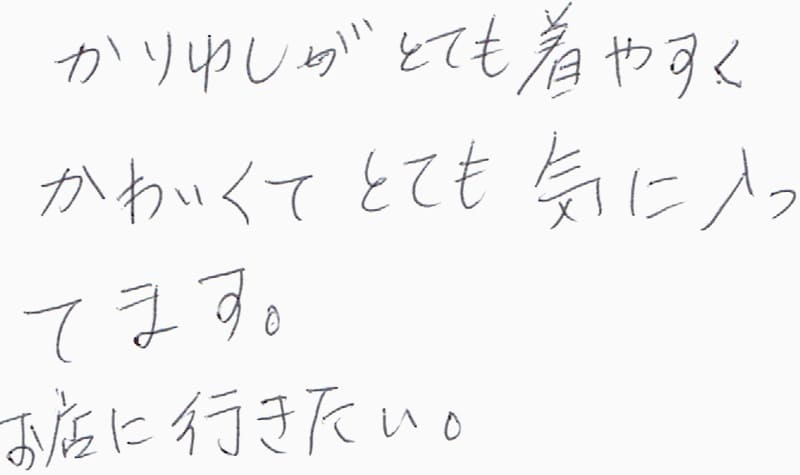 かりゆしがとても着やすく
かわいくてとても気に入っ
てます。
お店に行きたい。